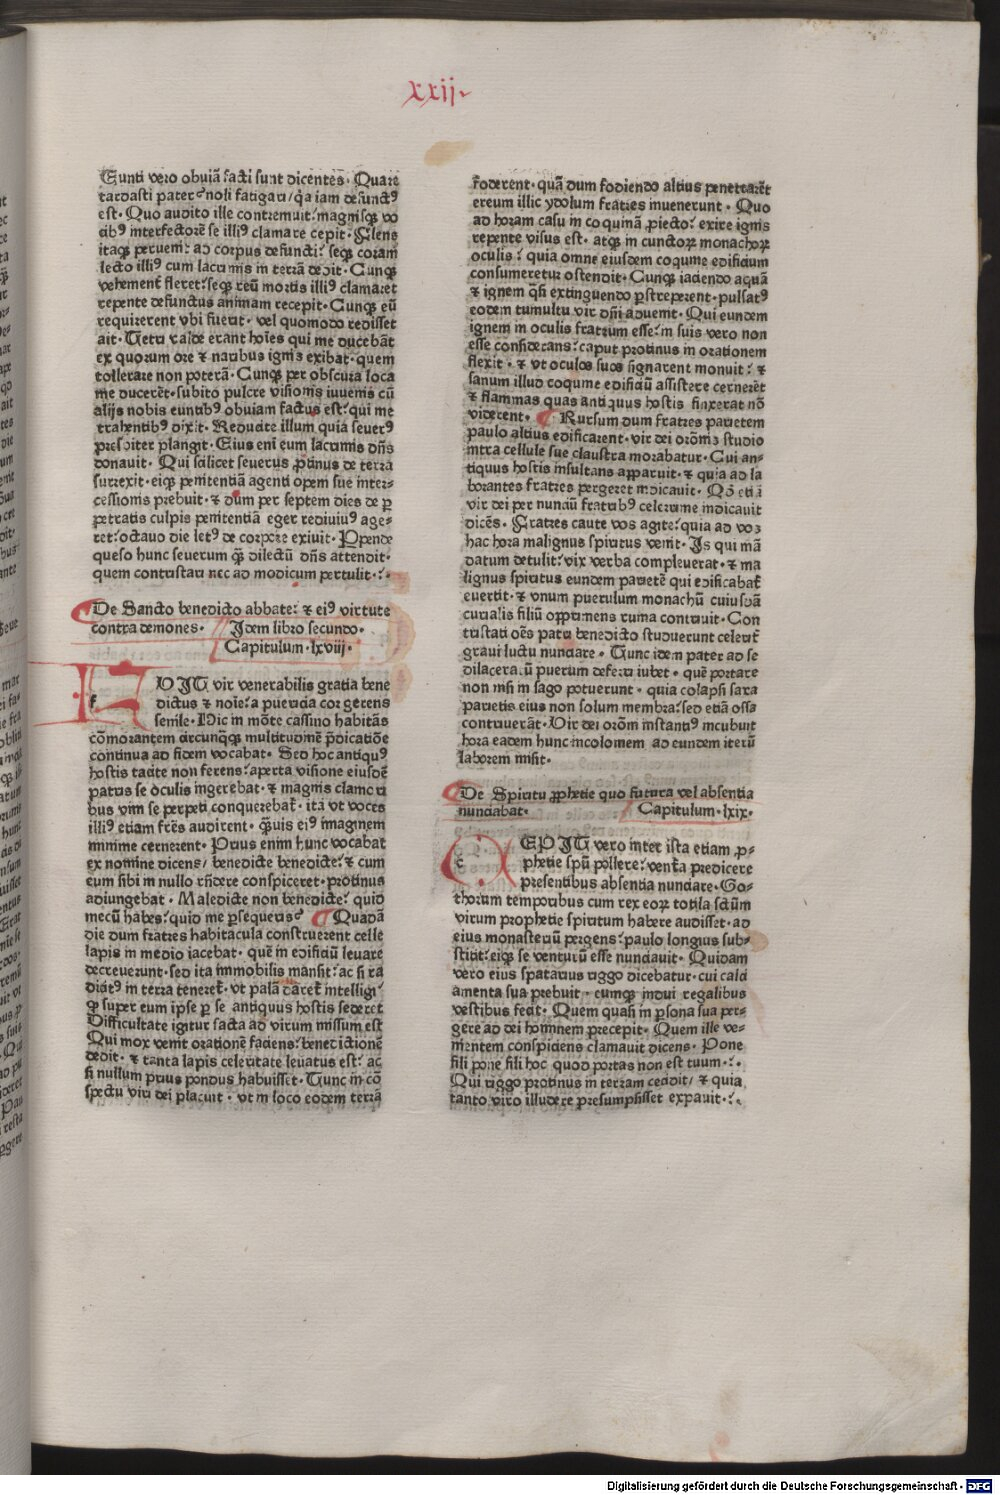 xxij
Eunti vero obuiã facti sunt dicentes. Quare
tardasti pater? noli fatigari/ q̃a iam defunctꝰ
est. Quo audito ille contremuit: magnisqꝫ vo
cibꝰ interfectorẽ se illiꝰ clamare cepit. Flens
itaqꝫ peruenit ad corpus defuncti: seqꝫ coram
lecto illiꝰ cum lacrimis in terrã dedit. Cunqꝫ
vehement̃ fleret: seqꝫ reũ mortis illiꝰ clamaret
repente defunctus animam recepit. Cunqꝫ eũ
requirerent vbi fuerit. vel quomodo redisset
ait. Tetri valde erant hoĩes qui me ducebãt
ex quorum ore ⁊ naribus ignis exibat. quem
tollerare non poterã. Cunqꝫ per obscura loca
me ducerẽt. subito pulcre visionis iuuenis cũ
alijs nobis euntibꝰ obuiam factus est: qui me
trahentibꝰ dixit. Reducite illum quia seuerꝰ
presbiter plangit. Eius enĩ eum lacrimis dñs
donauit. Qui scilicet seuerus ꝓtinus de terra
surrexit. eiqꝫ penitentiã agenti opem sue inter-
cessionis prebuit. ⁊ dum per septem dies de ꝑ
petratis culpis penitentiã eger rediuiuꝰ age-
ret: octauo die letꝰ de corpore exiuit. Ppende
queso hunc seuerum q̃ꝫ dilectũ dñs attendit.
quem contristari nec ad modicum pertulit.
De Sancto benedicto abbate: ⁊ eiꝰ virtute
contra demones. Idem libro secundo.
Capitulum. lxviij.
f
VIT vir venerabilis gratia bene
dictus ⁊ noĩe: a puericia cor gerens
senile. Hic in mõte cassino habitãs
cõmorantem circunq̃qꝫ multitudinẽ p̃dicatiõe
continua ad fidem vocabat. Sed hoc antiquꝰ
hostis tacite non ferens: aperta visione eiusdẽ
patris se oculis ingerebat. ⁊ magnis clamori
bus vim se perpeti conquerebat̃. ita vt voces
illiꝰ etiam frẽs audirent. q̃uis eiꝰ imaginem
minime cernerent. Prius enim hunc vocabat
ex nomine dicens/ benedicte benedicte: ⁊ cum
eum sibi in nullo rñdere conspiceret. protinus
adiungebat. Maledicte non benedicte: quid
mecũ habes: quid me ꝑsequeris? Quadã
die dum fratres habitacula construerent celle
lapis in medio iacebat. quẽ in edificiũ leuare
decreuerunt. sed ita immobilis mansit: ac si ra
dicitꝰ in terra teneret̃. vt palã daret̃ intelligi
qꝫ super eum ipse ꝑ se antiquus hostis sederet
Difficultate igitur facta ad virum missum est
Qui mox venit orationẽ faciens: benedictionẽ
dedit. ⁊ tanta lapis celeritate leuatus est: ac
si nullum prius pondus habuisset. Tunc in cõ
spectu viri dei placuit. vt in loco eodem terrã
foderent. quã dum fodiendo altius penetrarẽt
ereum illic ydolum fratres inuenerunt. Quo
ad horam casu in coquinã ꝓiecto: exire ignis
repente visus est. atqꝫ in cunctoꝝ monachoꝝ
oculis: quia omne eiusdem coquine edificium
consumeretur ostendit. Cunqꝫ iaciendo aquã
⁊ ignem q̃si extinguendo ꝑstreperent. pulsatꝰ
eodem tumultu vir dñi aduenit. Qui eundem
ignem in oculis fratrum esse: in suis vero non
esse considerans: caput protinus in orationem
flexit. ⁊ vt oculos suos signarent monuit: ⁊
sanum illud coquine edificiũ assistere cernerẽt
⁊ flammas quas antiquus hostis finxerat nõ
viderent. Rursum dum fratres parietem
paulo altius edificarent. vir dei orõnis studio
intra cellule sue claustra morabatur. Cui an-
tiquus hostis insultans apparuit. ⁊ quia ad la
borantes fratres pergeret indicauit. Qð etiã
vir dei per nunciũ fratribꝰ celerrime indicauit
dicẽs. Fratres caute vos agite: quia ad voꝫ
hac hora malignus spiritus venit. Is qui mã
datum detulit: vix verba compleuerat. ⁊ ma
lignus spiritus eundem parietẽ qui edificabat̃
euertit. ⁊ vnum puerulum monachũ cuiusdã
curialis filiũ opprimens ruina contriuit. Con
tristati oẽs patri benedicto studuerunt celerit̃
graui luctu nunciare. Tunc idem pater ad se
dilaceratũ puerum deferri iubet. quẽ portare
non nisi in sago potuerunt. quia colapsi saxa
parietis eius non solum membra: sed etiã ossa
contriuerãt. Vir dei orõni instantiꝰ incubuit
hora eadem hunc incolomem ad eundem iterũ
laborem misit.
De Spiritu ꝓphetie quo futura vel absentia
nunciabat. Capitulum. lxix.
c
EPIT vero inter ista etiam ꝓ-
phetie spũ pollere: vent̃a predicere
presentibus absentia nunciare. Go-
thorum temporibus cum rex eoꝝ totila sctũm
virum prophetie spiritum habere audisset. ad
eius monasteriũ pergens: paulo longius sub-
stitit: eiqꝫ se venturũ esse nunciauit. Quidam
vero eius spatarius riggo dicebatur. cui calci
amenta sua prebuit. eumqꝫ indui regalibus
vestibus fecit. Quem quasi in ꝑsona sua per-
gere ad dei hominem precepit. Quem ille ve-
nientem conspiciens clamauit dicens. Pone
fili pone fili hoc quod portas non est tuum.
Qui riggo protinus in terram cecidit/ ⁊ quia
tanto viro illudere presumpsisset expauit.
Digitalisierung gefördert durch die Deutsche Forschungsgemeinschaft - DFG